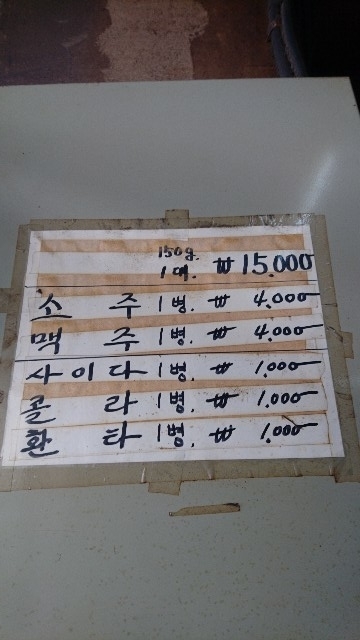 150g.
1대. ₩15.000
소 주 1병. ₩ 4.000
맥 주 1병. ₩ 4.000
사이다 1병. ₩ 1.000
콜 라 1병. ₩ 1.000
환 타 1병. ₩ 1.000